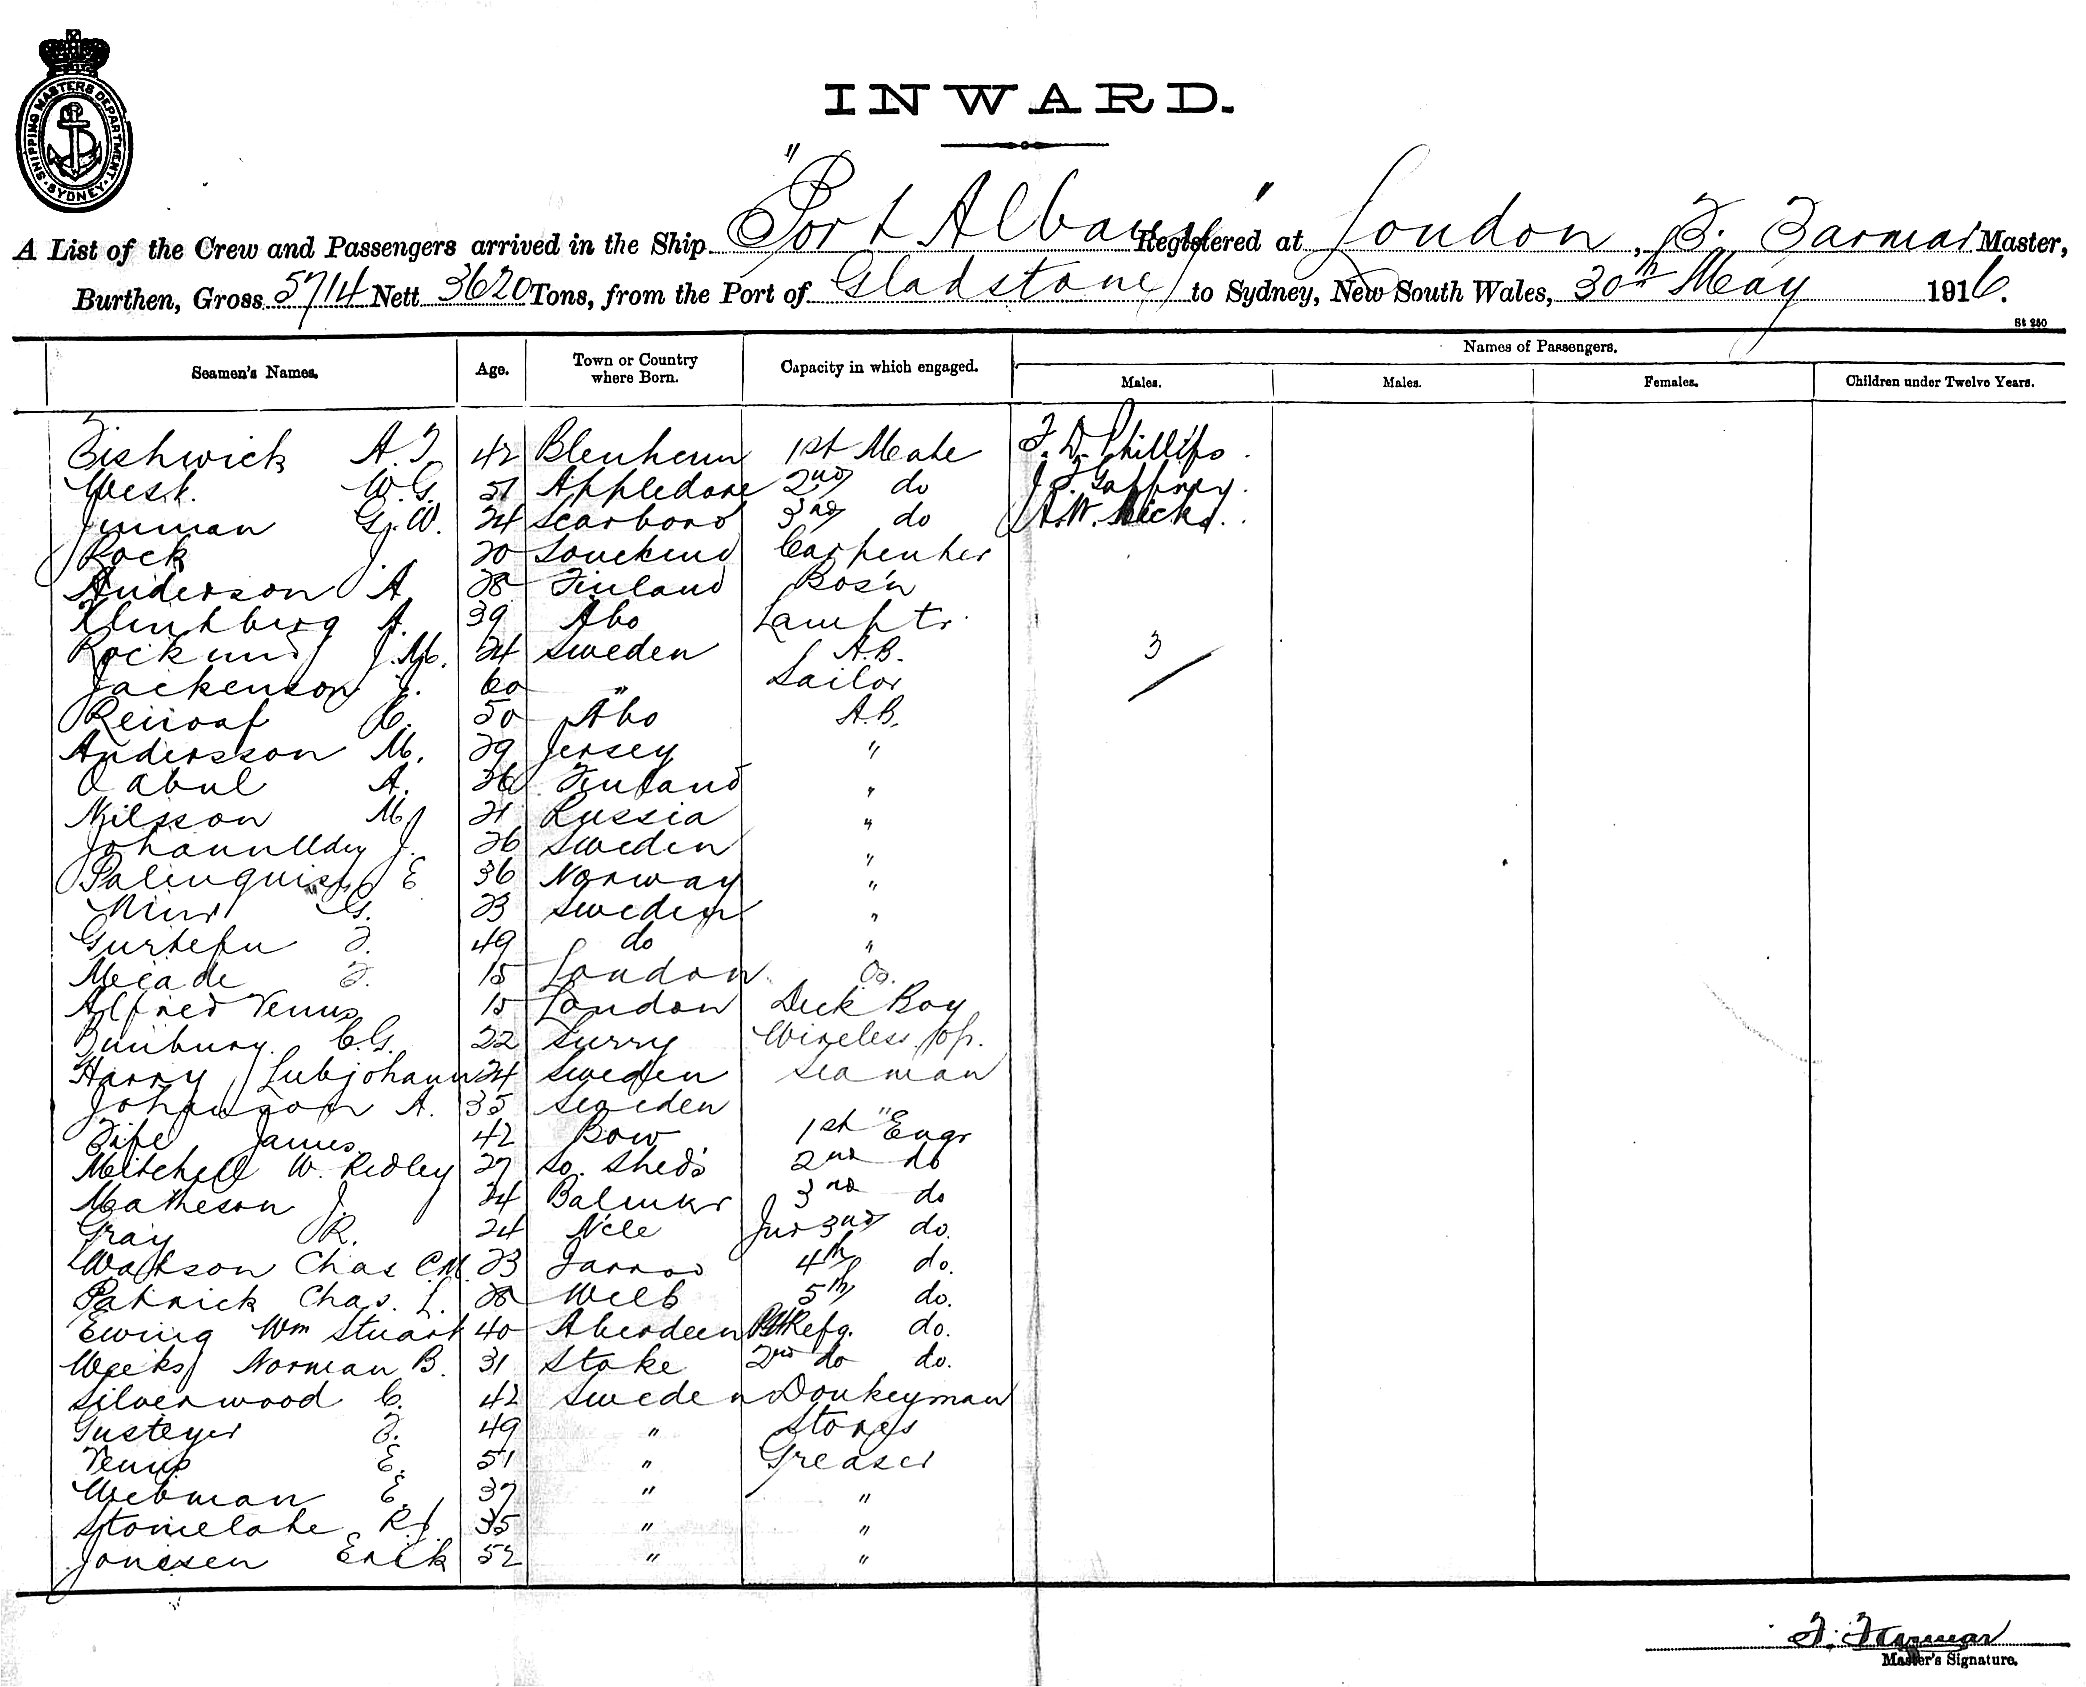 SHIPPING MASTERS DEPARTMENT · SYDNEY ·
INWARD.
A List of the Crew and Passengers arrived in the Ship "Port Albany" Registered at London, F. Farmar Master,
Burthen, Gross 5714 Nett 3620 Tons, from the Port of Gladstone to Sydney, New South Wales, 30th May 1916.
St 250
Seamen's Names. Age. Town or Country where Born. Capacity in which engaged. Names of Passengers.
Males. Males. Females. Children under Twelve Years.
Fishwick A.F. 42 Blenheim 1st Mate F. D. Phillips.
West. W.G. 51 Appledore 2nd do J. F. Gaffney.
Inman G.W. 24 Scarboro 3rd do A.W. Hicks.
Rock J. 20 Carpenter
Anderson A 28 Finland Bos'n
Klintberg A. 39 Abo Lamptr.
J.M. 24 Sweden A.B. 3
Jackenson J. 60 " Sailor
50 Abo A.B.
Andersson M. 29 Jersey "
A. 36 Finland "
Nilsson M 21 Russia "
J. 26 Sweden "
Palmquist E 36 Norway "
G. 23 Sweden "
F. 49 do "
Meade F. 15 London Os.
Alfred Venus 15 London Deck Boy
Bunbury. C.G. 22 Surry Wireless Op.
Harry Lubjohann 24 Sweden Seaman
Johnson A. 35 Sweden "
Fife James 42 Bow 1st Engr
Mitchell W. Ridley 27 So. Shed's 2nd do
Matheson J. 24 3rd do
Gray R. 24 N'cle Jnr 3rd do.
Watson Chas C.M. 23 Jarrow 4th do.
Patrick Chas. L. 28 5th do.
Ewing Wm Stuart 40 Aberdeen Refg. do.
Weeks Norman B. 31 Stoke 2nd do do.
Silverwood C. 42 Sweden Donkeyman
F. 49 " Stores
Venus E. 51 " Greaser
Webman E. 37 " "
Stonelake R.J. 35 " "
Jonesen Erick 52 " "
F. Farmar
Master's Signature.